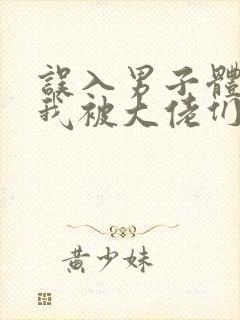 誤入男子體
我被大佬們
黃少妹